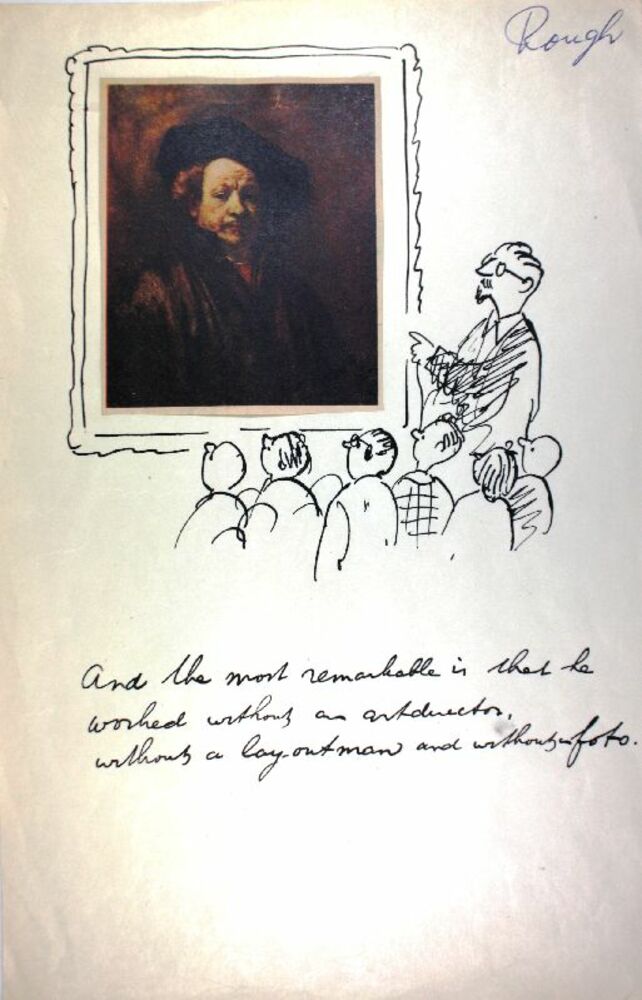 Rough
And the most remarkable is that he
worked without an artdirector,
without a lay-out man and without foto.